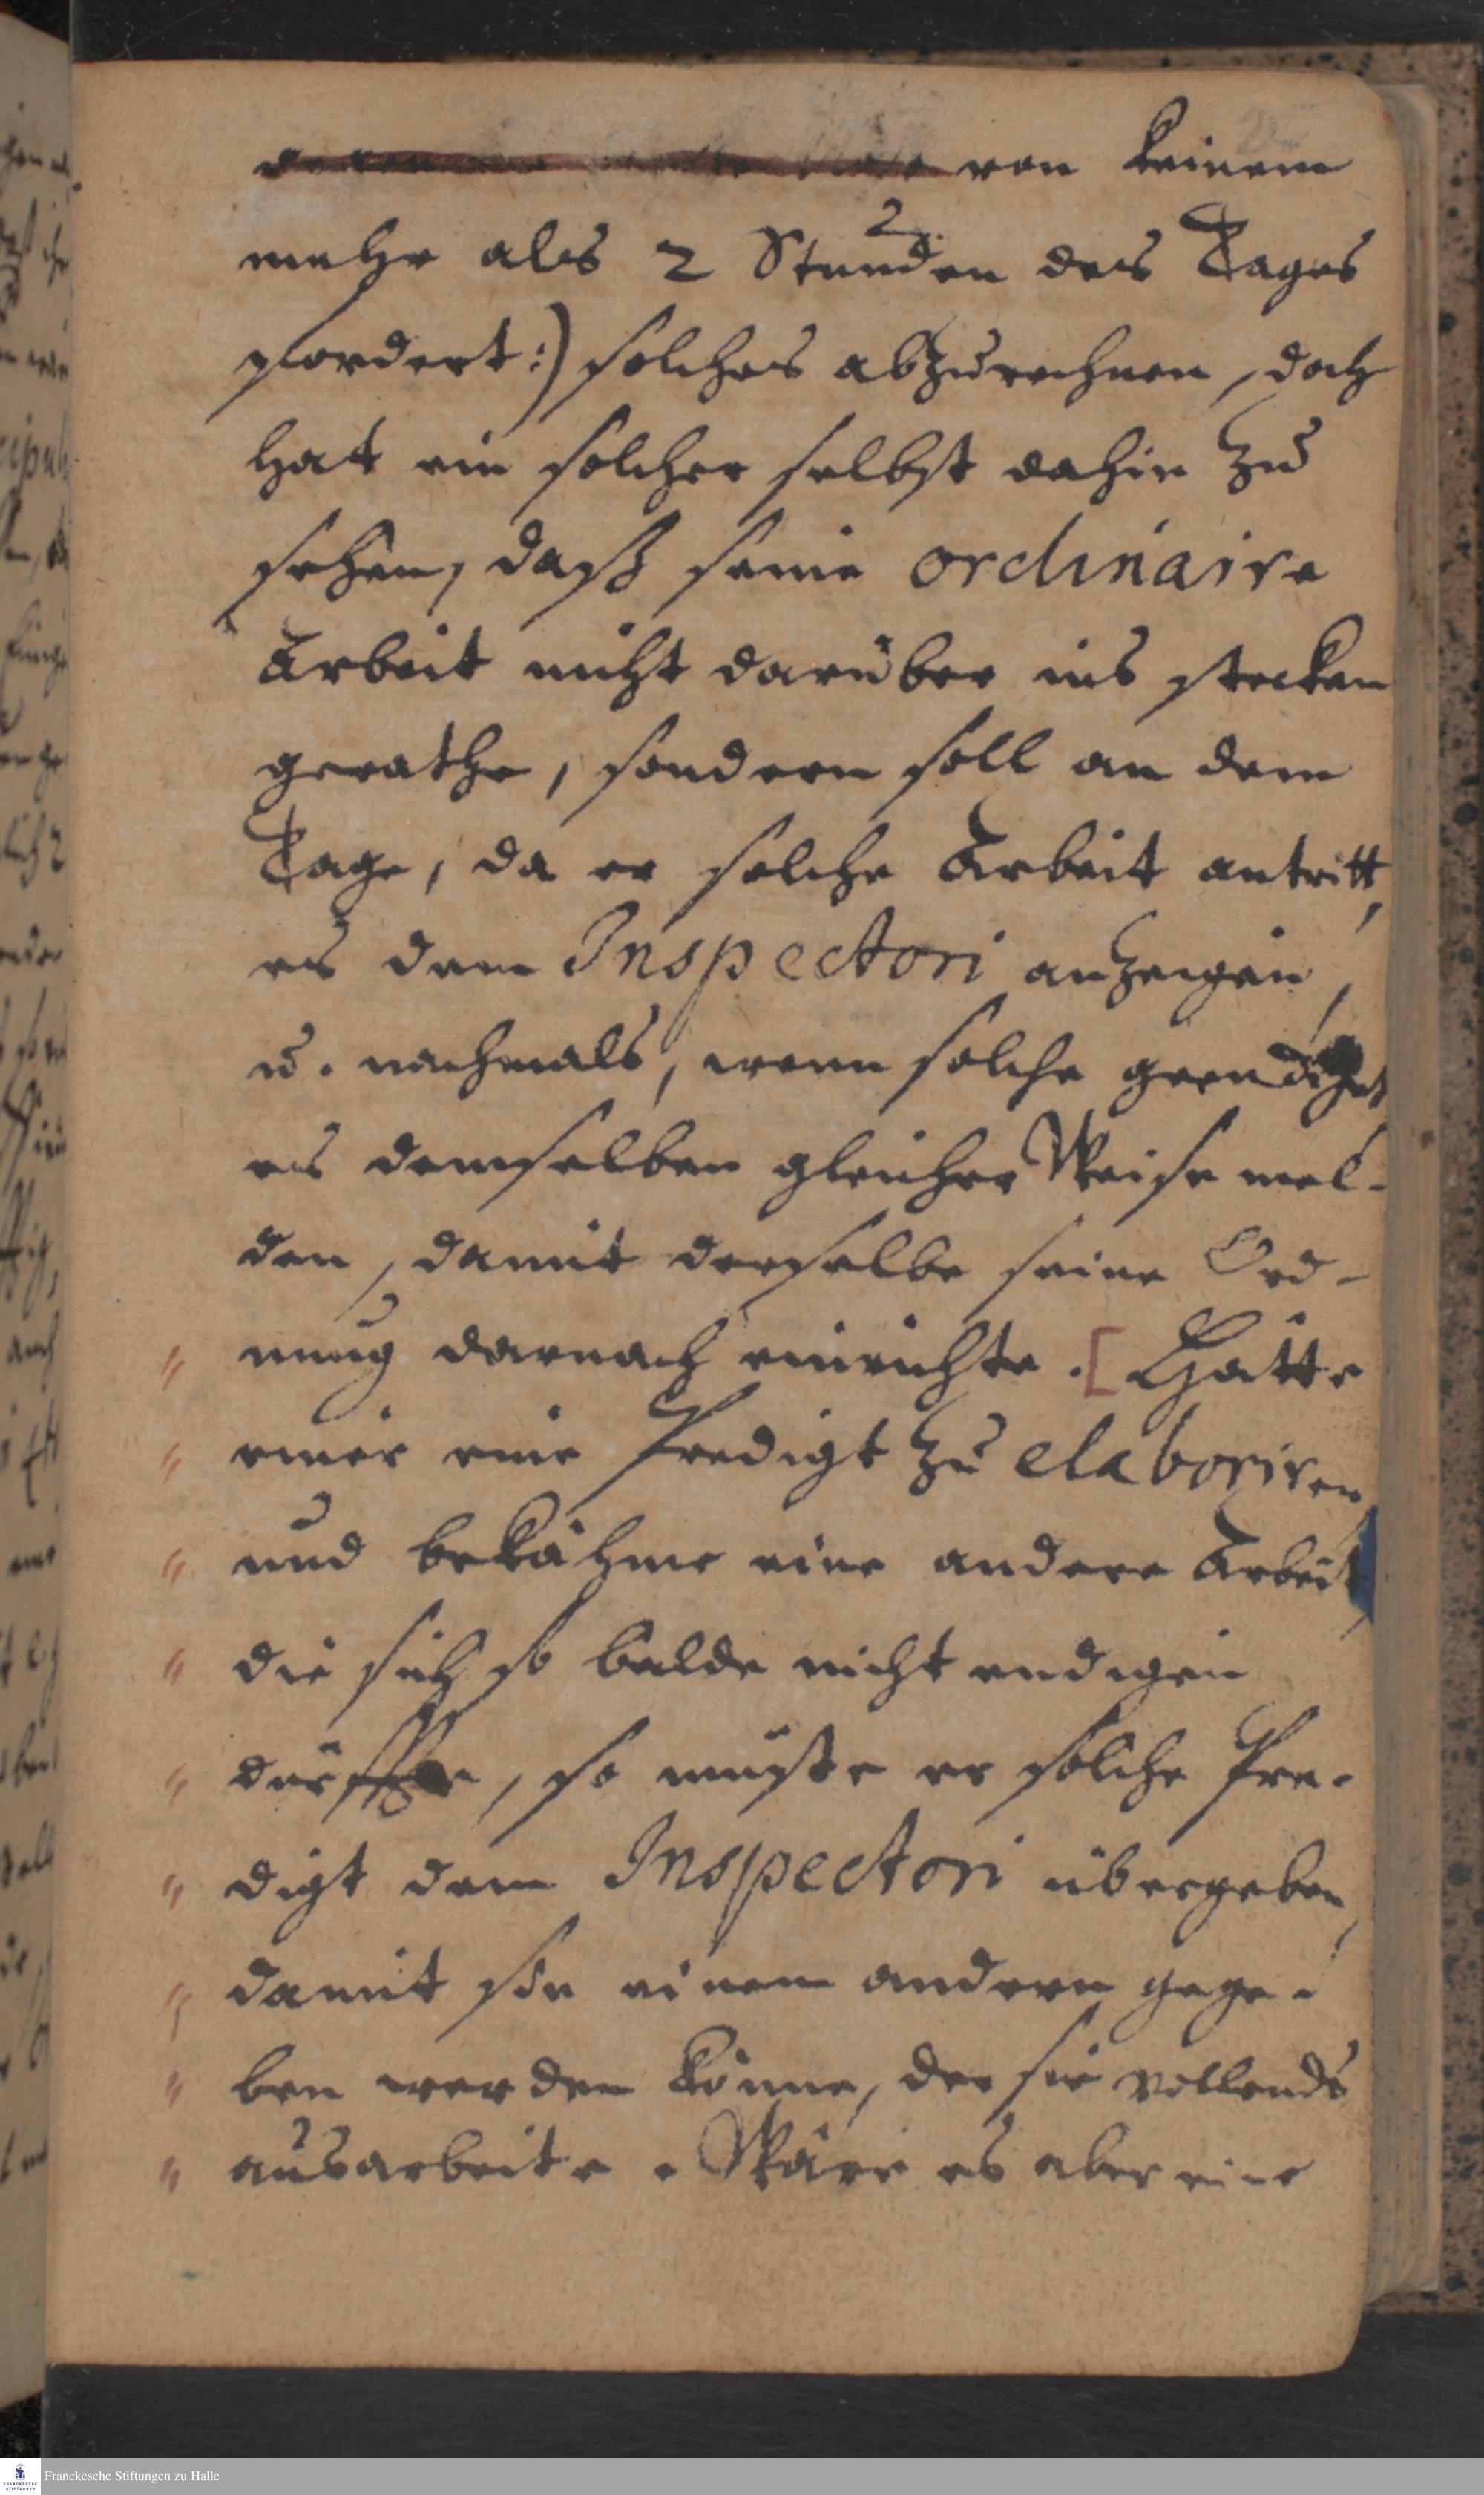 von keinem
mehr als 2 Stunden des Tages
fordert:) solches abzurechnen, doch
hat ein solcher selbst dahin zu
sehen, daß seine ordinaire
Arbeit nicht darüber ins stecken
gerathe, sondern soll an dem
Tage, da er solche Arbeit antritt,
es dem Inspectori anzeigen,
u. nachmals, wenn solche geendiget
es demselben gleicher Weise mel-
den, damit derselbe seine Ord-
" nung darnach einrichte. [Hätte
" einer eine Predigt zu elaboriren
" und bekähme eine andere Arbeit
" die sich so balde nicht endigen
" , so müste er solche Pre-
" digt dem Inspectori übergeben,
" damit sie einem andern gege-
" ben werden könne, der sie vollends
" ausarbeite. Wäre es aber eine
Franckesche Stiftungen zu Halle